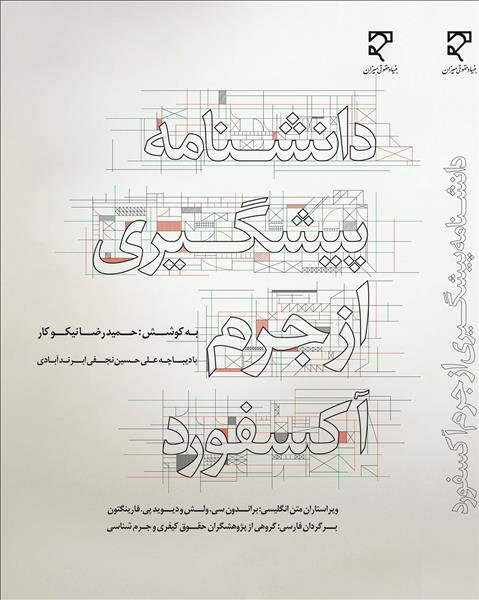 بنیاد حقوقی میزان
دانشنامه
پیشگیری
از جرم
آکسفورد
به کوشش: حمیدرضا نیکوکار
با دیباچه علی حسین نجفی ابرندآبادی
ویراستاران متن انگلیسی: براندون سی. ولش و دیوید پی. فارینگتون
برگردان فارسی: گروهی از پژوهشگران حقوق کیفری و جرم شناسی
بنیاد حقوقی میزان
دانشنامه پیشگیری از جرم آکسفورد